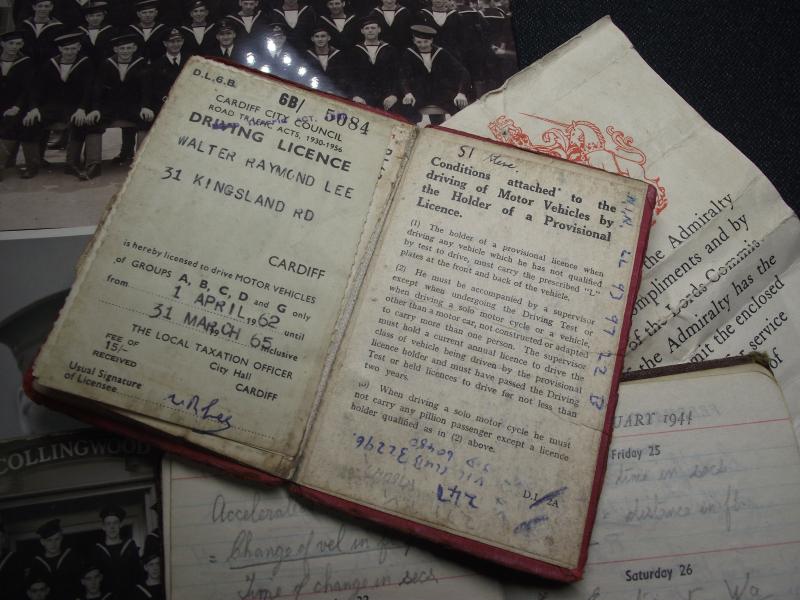 D.L.G.B.
6B/ 5084
CARDIFF CITY COUNCIL
ROAD TRAFFIC ACTS, 1930-1956
DRIVING LICENCE
WALTER RAYMOND LEE
31 KINGSLAND RD
CARDIFF
is hereby licensed to drive MOTOR VEHICLES
of GROUPS A, B, C, D and G only
from 1 APRIL 1962 until
31 MARCH 65 inclusive
FEE OF
15/-
RECEIVED
THE LOCAL TAXATION OFFICER
City Hall
CARDIFF
Usual Signature
of Licensee
WRLee
51
Conditions attached to the
driving of Motor Vehicles by
the Holder of a Provisional
Licence.
(1) The holder of a provisional licence when
driving any vehicle which he has not qualified
by test to drive, must carry the prescribed "L"
plates at the front and back of the vehicle.
(2) He must be accompanied by a supervisor
except when undergoing the Driving Test or
when driving a solo motor cycle or a vehicle,
other than a motor car, not constructed or adapted
to carry more than one person. The supervisor
must hold a current annual licence to drive the
class of vehicle being driven by the provisional
licence holder and must have passed the Driving
Test or held licences to drive for not less than
two years.
(3) When driving a solo motor cycle he must
not carry any pillion passenger except a licence
holder qualified as in (2) above.
247
D.L. 2A
the Admiralty
compliments and by
of the Lords Commis
the Admiralty has the
mit the enclosed
service
of
COLLINGWOOD
UARY 1944
Friday 25
time in secs
distance in ft
Saturday 26
Accelerat
= Change of vel in
Time of change in secs